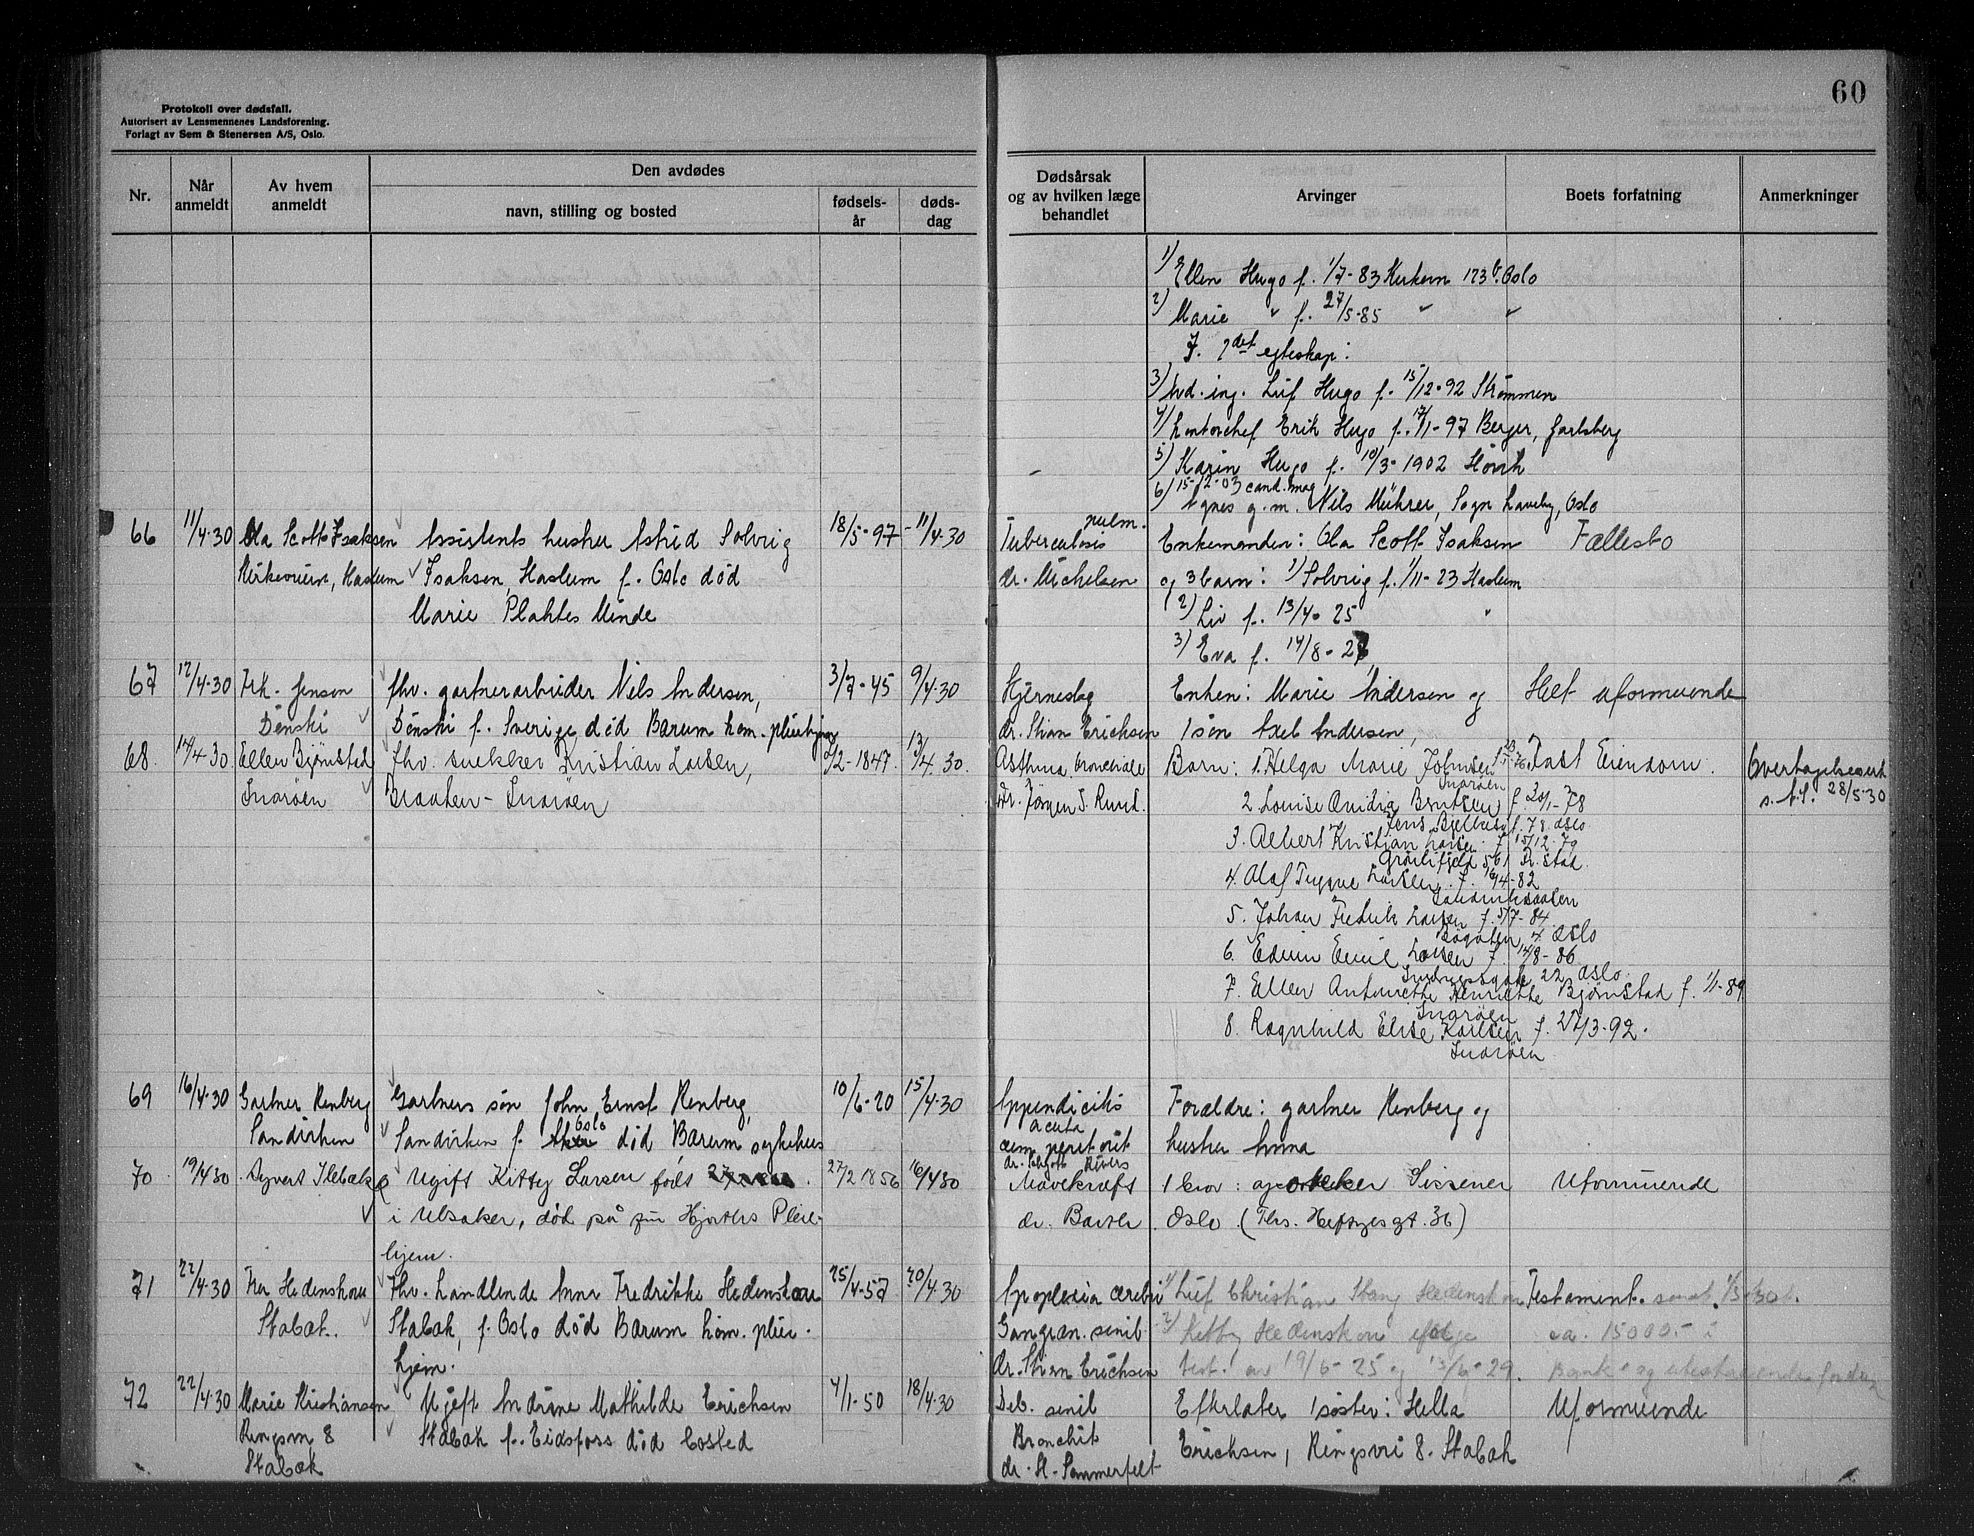 60
Protokoll over dødsfall.
Autorisert av Lensmennenes Landsforening.
Forlagt av Sem & Stenersen A/S, Oslo.
Nr.
Når anmeldt
Av hvem anmeldt
Den avdødes
navn, stilling og bosted
fødsels-år
døds-dag
Dødsårsak og av hvilken læge behandlet
Arvinger
Boets forfatning
Anmerkninger
1) Ellen Hugo f. 1/7-83 Kirkevn 173 b. Oslo
2) Marie " f. 27/5-85 " "
I. 2det egteskap:
3) Avd. ing. Leif Hugo f. 15/12-92 Strømmen
4) Kontorchef Erik Hugo f. 17/1-97 Berger, Jarlsberg
5) Karin Hugo f. 10/3-1902 Høvik
6) 15-12-03 cand. mag
Agnes g.m. Nils Mührer, Sogn Haveby, Oslo
66 11/4-30 Ola Scott Isaksen Assistents hustru Astrid Solveig 18/5-97 11/4-30 Tuberculosis pulm. Enkemannen: Ola Scott Isaksen Fællesbo
Kirkeveien, Haslum Isaksen, Haslum f. Oslo død dr. Michelsen og 3 barn: 1) Solveig f. 1/11-23 Haslum
Marie Plahtes Minde 2) Liv f. 13/4-25 "
3) Eva f. 14/8-27
67 12/4-30 Frk. Jensen fhv. gartnerarbeider Nils Andersen, 3/7-45 9/4-30 Hjerneslag Enken: Marie Andersen og Helt uformuende
Dønski Dønski f. Sverige død Bærum kom. pleiehjem dr. Stian Erichsen 1 søn Axel Andersen,
68. 14/4 30 Ellen Bjørnstad fhv. snekker Kristian Larsen, 2/2-1847. 13/4. 30. Asthma bronchiale Barn: 1. Helga Marie Johnsen Fast Eiendom. Overtagelseserk
Snarøen Braaten - Snarøen Dr. Jørgen S. Ruud. Snarøen s.f.f. 28/5-30
2. Louise Ovidia Berntsen f. 20/1-78
Jens Bjelkes g. 78 Oslo
3. Albert Kristian Larsen f. 15/12 79
Fr. stad.
4. Olaf Trygve Larsen. f. 16/4-82
5. Johan Fredrik Larsen f. 5/7-84
4 Oslo
6. Edvin Emil Larsen f. 14/8-86
22 Oslo.
7. Ellen Antonette Henriette Bjørnstad f. 1/1-89
Snarøen
8. Ragnhild Elise Karlsen f. 27/3-92.
Snarøen
69 16/4-30 Gartner Renberg Gartners søn John Ernst Renberg, 10/6-20 15/4-30 Appendicitis Forældre: gartner Renberg og
Sandvikken Sandvikken f. Oslo død Bærum sykehus acuta
cum peritonit hustru Anna
70 19/4 30 Syvert Ilebæk Ugift Kitty Larsen født 27/2 1856 16/4 30 Mavekræft 1 bror: apotheker Sissener Uformuende
i Ulsaker, død på fru Hjorths Pleie- dr. Oslo (Ths. Heftyesgt. 36)
hjem.
71 22/4-30 Fru Hedenskou Fhv. handlende Anna Fredrikke Hedenskou 25/4-57 20/4-30 Apoplexia cerebri 1) Leif Christian Stang Hedenskou Testament.
Stabæk. Stabæk, f. Oslo død Bærum kom. pleie- Gangræn. senil 2) Kitty Hedenskou ifølge ca. 15000.- i
hjem. dr. Stian Erichsen test. av 19/6-25 og 13/6-29. Bank og utestaaende
72 22/4-30 Marie Kristiansen Ugift Andrine Mathilde Erichsen 4/1-50 18/4-30 Deb. senil Efterlater 1 søster: Hella Uformuende
Ringsvn 8 Stabæk f. Eidsfoss død bosted Bronchit Erichsen, Ringsvei 8. Stabæk
Stabæk dr. H. Sommerfelt